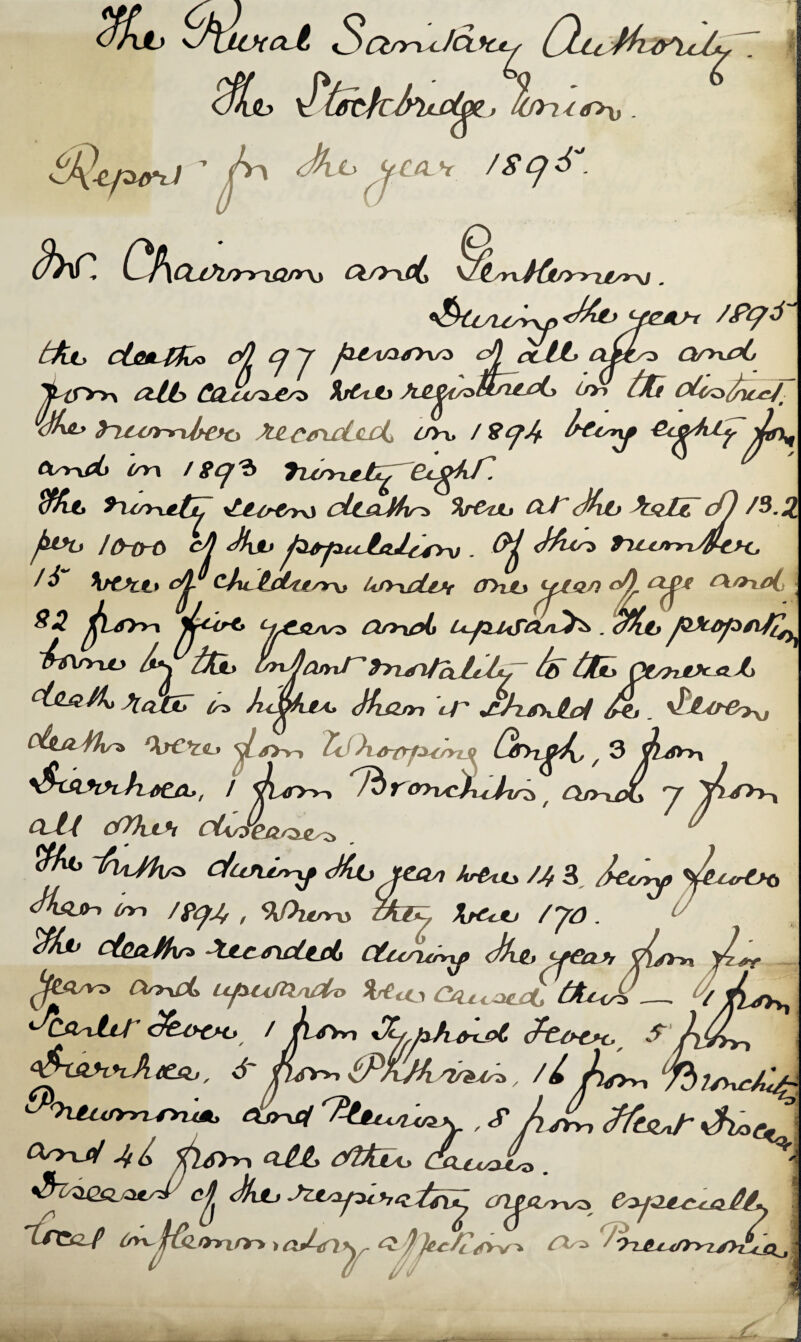 The Rural Sanitary Authority.
The Stockbridge Union.
Report for the year 1895.
Mr. Chairman and Gentlemen.
During the year 1895
the deaths of 97 persons of all ages and
from all causes were registered in the district.
The number recorded in 1894 being eighty four
and in 1893 ninety eight.
The ninety seven deaths were at the rate of 13.2
per 1000 of the population. Of this number
15 were of children under one year of age and
82 from five years and upwards. The proportion
borne by the infant mortality to the general
death rate is higher than it should be. Seven
deaths were from Whooping Cough, 3 from
Diarrhoea, 1 from Bronchitis, and 7 from
all other diseases
The births during the year were 143, being fewer
than in 1894, when they were 170.
The deaths recorded during the year from five
years and upwards were caused thus — 1 from
Scarlet Fever, 1 from Typhoid Fever, 5 from
Diarrhoea, 5 from Phthisis, 16 from Bronchitis
Pneumonia and Pleurisy, 8 from Heart Disease
and 46 from all other causes.
Diseases of the respiratory organs, especially
local inflammatory affections as Pneumonia,